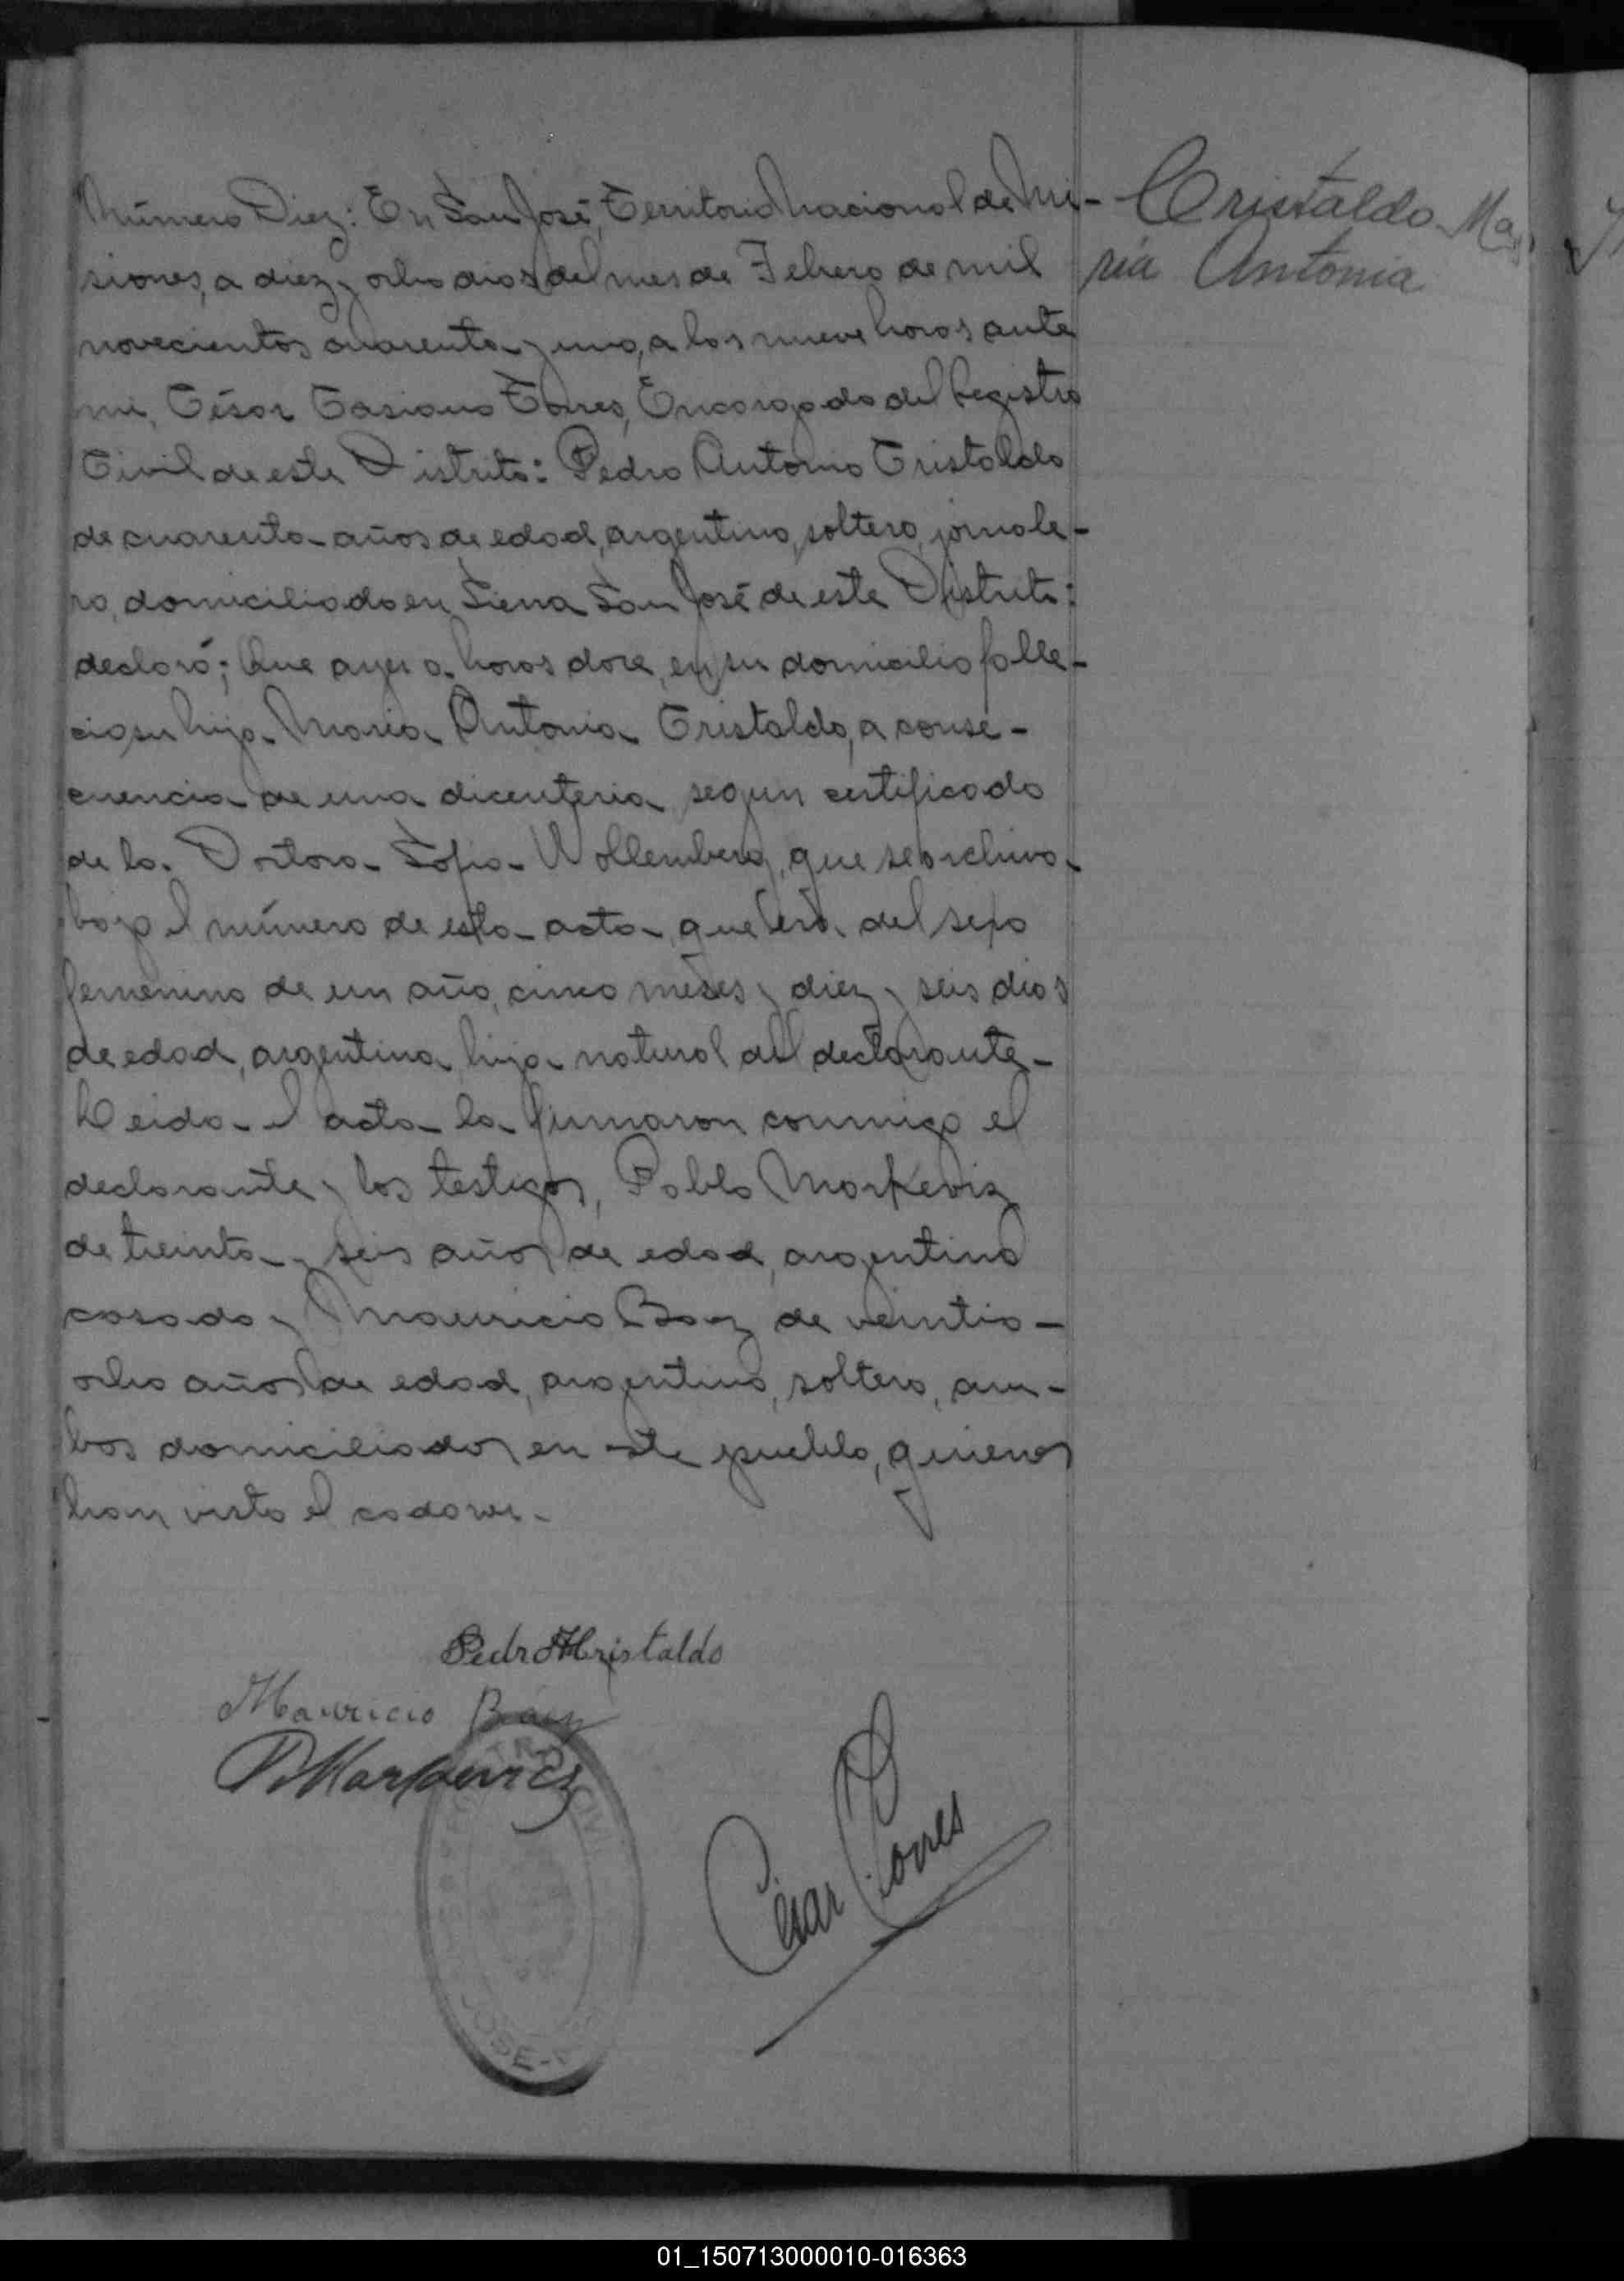 Número Diez: En San José, Territorio Nacional de Mi-
siones, a diez y ocho dias del mes de Febrero de mil
novecientos cuarenta y uno, a las nueve horas ante
mi, César Casiano Torres, Encargado del Registro
Civil de este Distrito: Pedro Antonio Cristaldo
de cuarenta años de edad, argentino, soltero, jornale-
ro, domiciliado en Sierra San José de este Distrito:
declaró; Que ayer a horas doce, en su domicilio falle-
cio su hija Maria Antonia Cristaldo, a conse-
cuencia de una dicenteria segun certificado
de la Doctora Sofia Wollemberg, que se archiva
bajo el número de esta acta, que era del sexo
femenino de un año, cinco meses y diez y seis dias
de edad, argentina hija natural del declarante-
Leida el acta la firmaron conmigo el
declarante y los testigos, Pablo Markeviz
de treinta y seis años de edad, argentino
casado y Mauricio Baez de veintio-
ocho años de edad, argentino, soltero, am-
bos domiciliados en este pueblo, quienes
han visto el cadaver.-
Cristaldo Ma-
ría Antonia
Pedro A Cristaldo
Mauricio Báez
P Markevicz
César C Torres
REGISTRO CIVIL
JOSE-
01_150713000010-016363